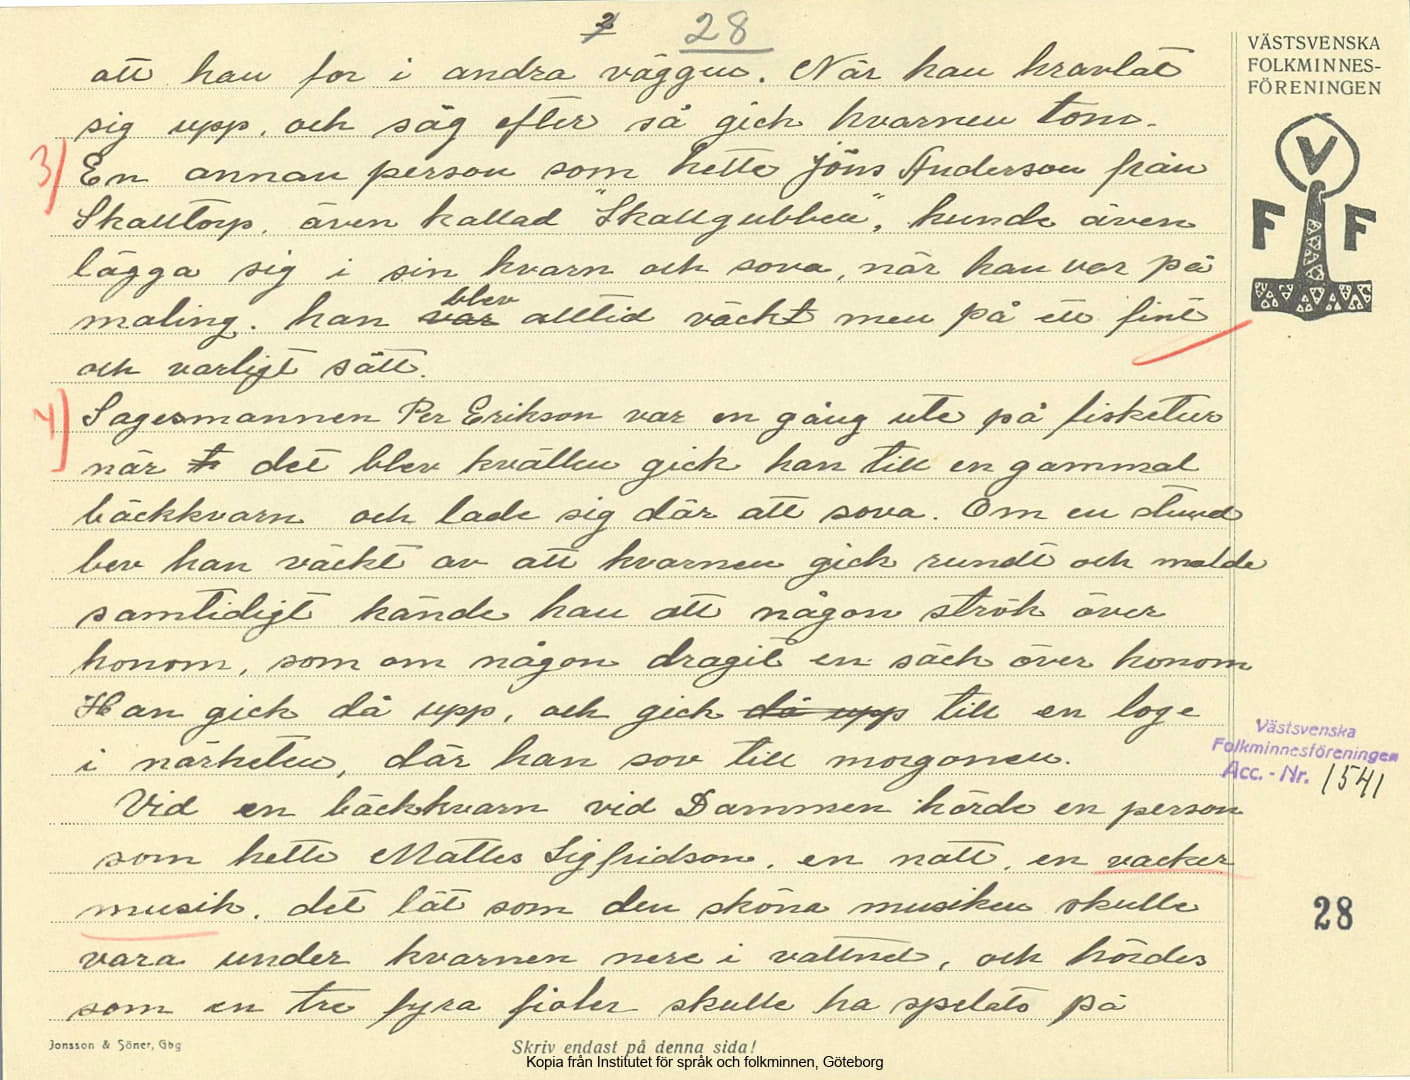 2 28
VÄSTSVENSKA
FOLKMINNES-
FÖRENINGEN
V
F F
att han for i andra väggen. När han kravlat
sig upp, och såg efter så gick kvarnen tom.
3) En annan person som hette Jöns Anderson från
Skalltorp, även kallad "Skallgubben", kunde även
lägga sig i sin kvarn och sova, när han var på
maling. han var blev alltid väckt men på ett fint
och varligt sätt.
4) Sagesmannen Per Erikson var en gång ute på fisketur
när t det blev kvällen gick han till en gammal
bäckkvarn och lade sig där att sova. Om en stund
bev han väckt av att kvarnen gick rundt och malde
samtidigt kände han att någon strök över
honom, som om någon dragit en säck över honom
Han gick då upp, och gick då upp till en loge
i närheten, där han sov till morgonen.
Vid en bäckkvarn vid Dammen hörde en person
som hette Mattes Sigfridson, en natt, en vacker
musik. det lät som den sköna musiken skulle
vara under kvarnen nere i vattnet, och hördes
som en tre fyra fioler skulle ha spelats på
Västsvenska
Folkminnesföreningen
Acc. - Nr. 1541
28
Jonsson & Söner, Gbg
Skriv endast på denna sida!
Kopia från Institutet för språk och folkminnen, Göteborg